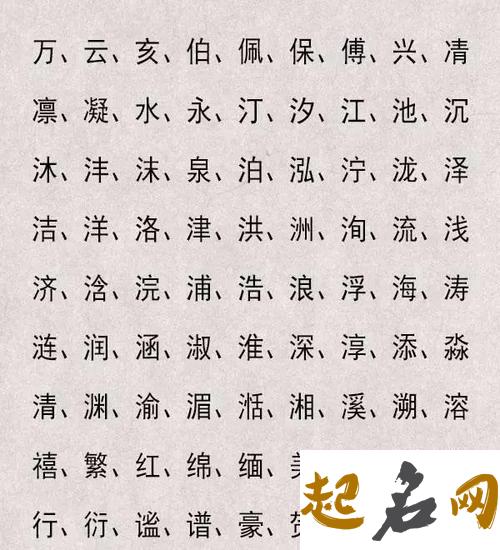 万、云、亥、伯、佩、保、傅、兴、凊
凛、凝、水、永、汀、汐、江、池、沉
沐、沣、沫、泉、泊、泓、泞、泷、泽
洁、洋、洛、津、洪、洲、洵、流、浅
济、浛、浣、浦、浩、浪、浮、海、涛
涟、润、涵、淑、淮、深、淳、添、淼
清、渊、渝、湄、湉、湘、溪、溯、溶
禧、繁、红、绵、缅、
行、衍、谧、谱、豪、
起名网